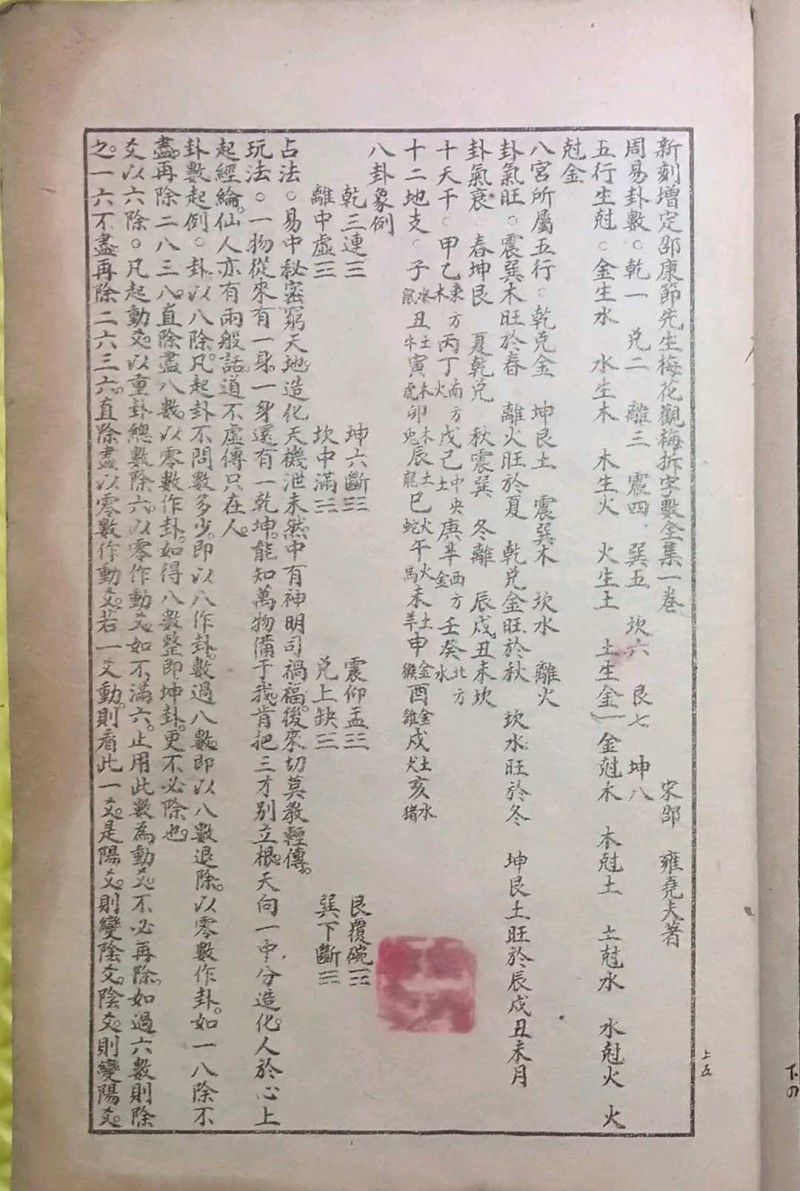 新刻增定邵康節先生梅花觀梅拆字數全集一卷
宋邵　雍堯夫著
周易卦數。乾一　兌二　離三　震四　巽五　坎六　艮七　坤八
五行生尅。金生水　水生木　木生火　火生土　土生金　金尅木　木尅土　土尅水　水尅火　火
尅金
八宮所屬五行。乾兌金　坤艮土　震巽木　坎水　離火
卦氣旺。震巽木旺於春　離火旺於夏　乾兌金旺於秋　坎水旺於冬　坤艮土旺於辰戌丑未月
卦氣衰　春坤艮　夏乾兌　秋震巽　冬離　辰戌丑未坎
十天干。甲乙東方木丙丁南方火戊己中央土庚辛西方金壬癸北方水
十二地支。子水鼠丑土牛寅木虎卯木兔辰土龍巳火蛇午火馬未土羊申金猴酉金雞戌土犬亥水豬
八卦象例
乾三連☰　坤六斷☷　震仰盂☳　艮覆碗☶
離中虛☲　坎中滿☵　兌上缺☱　巽下斷☴
占法。易中秘密窮天地。造化天機泄未然。中有神明司禍福。後來切莫教輕傳。
玩法。一物從來有一身。一身還有一乾坤。能知萬物備于我。肯把三才別立根。天向一中分造化。人於心上
起經綸。仙人亦有兩般話。道不虛傳只在人。
卦數起例。卦以八除。凡起卦不問數多少。即以八作卦數。過八數。即以八數退除。以零數作卦。如一八除不
盡。再除二八三八。直除盡八數。以零數作卦。如得八數整即坤卦。更不必除也。
爻以六除。凡起動爻。以重卦總數除六。以零作動爻。如不滿六。止用此數為動爻。不必再除。如過六數則除
之。一六不盡。再除二六三六。直除盡。以零數作動爻。若一爻動。則看此一爻。是陽爻。則變陰爻。陰爻。則變陽爻。
上五